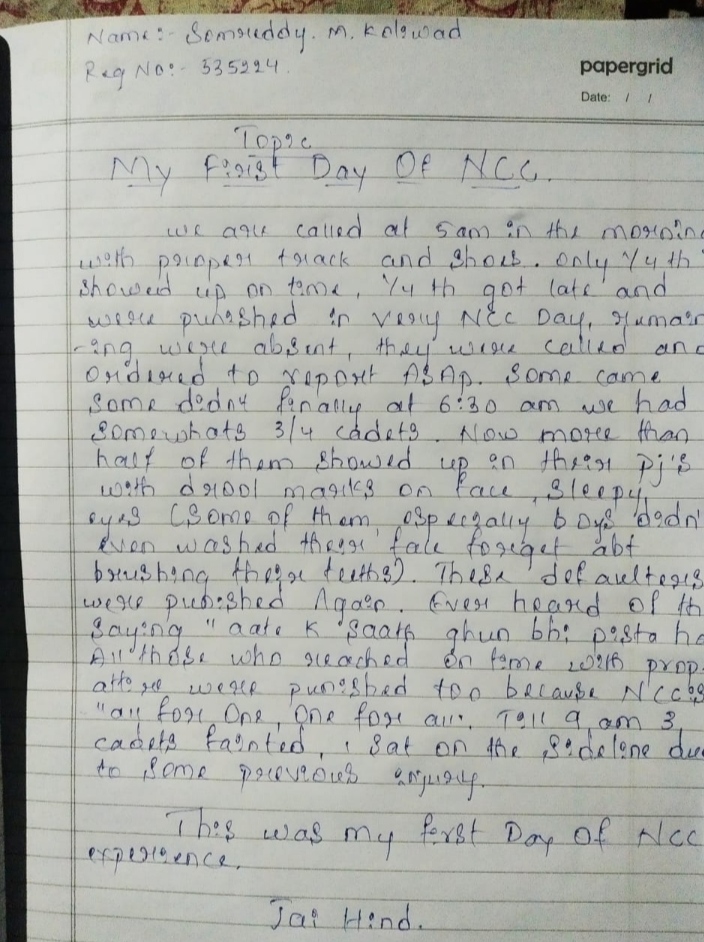 Name:- Somreddy. M. Kolswad
Reg No:- 535224.
papergrid
Date: / /
Topic
My First Day Of NCC.
we are called at 5am in the morning
with proper track and shoes. Only 1/4 th
showed up on time, 1/4 th got late and
were punished in very NCC Day, remain
-ing were absent, they were called and
ordered to report ASAP. Some came
some didnt finally at 6:30 am we had
somewhats 3/4 cadets. Now more than
half of them showed up in their pj's
with drool marks on face, sleepy
eyes (some of them, especially boys didn'
even washed their face forget abt
brushing their teeths). These defaulters
were punished Again. Ever heard of th
saying "aate k saath ghun bhi pista ha
All those who reached on time with prop
attire were punished too because NCC is
"all for One, One for all". Till 9 am 3
cadets fainted, i sat on the sideline due
to some previous injury.
This was my first Day Of NCC
experience.
Jai Hind.